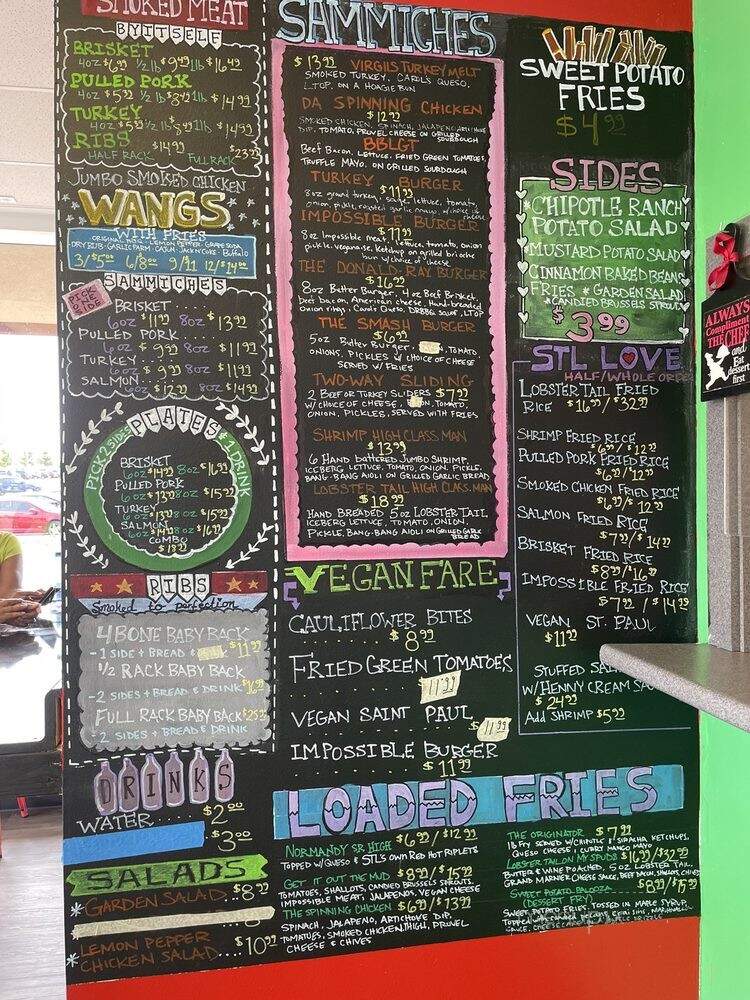 SMOKED MEAT
BY ITSELF
BRISKET
4oz $6.99 1/2 lb $9.49 1lb $16.49
PULLED PORK
4oz $5.99 1/2 lb 1lb $14.99
TURKEY
4oz $5.99 1/2 lb 1lb $14.99
RIBS
HALF RACK $14.99 FULL RACK $23.99
JUMBO SMOKED CHICKEN
WANGS
WITH FRIES
ORIGINAL HOG - LEMON PEPPER - GRAPE SODA
DRY RUB - GARLIC PARM - CAJUN - JACK N COKE - BUFFALO
3/$5.00 6/8.00 9/11 12/$14.00
SAMMICHES
PICK ONE SIDE
BRISKET
6oz $11.99 8oz $13.99
PULLED PORK
6oz $9.99 8oz $11.99
TURKEY
6oz $9.99 8oz $11.99
SALMON
6oz $12.99 8oz $14.99
PLATES
PICK 2 SIDES & 1 DRINK
BRISKET
6oz $14.99 8oz $16.99
PULLED PORK
6oz $13.99 8oz $15.99
TURKEY
6oz $13.99 8oz $15.99
SALMON
6oz $14.99 8oz $16.99
COMBO
$18.99
RIBS
Smoked to perfection
4 BONE BABY BACK
- 1 SIDE + BREAD & $11.99
1/2 RACK BABY BACK
- 2 SIDES + BREAD & DRINK
FULL RACK BABY BACK $25.99
2 SIDES + BREAD & DRINK
DRINKS
WATER $2.00
$3.00
SALADS
*GARDEN SALAD $8.99
*LEMON PEPPER
CHICKEN SALAD $10.99
SAMMICHES
$13.99 VIRGILS TURKEY MELT
SMOKED TURKEY, CAROL'S QUESO,
L.TOP. ON A HOAGIE BUN
DA SPINNING CHICKEN
$12.99
SMOKED CHICKEN, SPINACH, JALAPENO, ARTICHOKE
DIP, TOMATO, PROVEL CHEESE ON GRILLED
SOURDOUGH
BBLGT
Beef Bacon, LETTUCE, FRIED GREEN TOMATOES,
TRUFFLE MAYO, ON GRILLED SOURDOUGH
TURKEY BURGER
$11.99
8oz ground turkey, sage, lettuce, tomato,
onion, pickle, roasted garlic mayo, w/choice of
cheese
IMPOSSIBLE BURGER
$11.99
8oz Impossible meat, lettuce, tomato, onion
pickle, veganaise, ketchup on grilled brioche
bun w/choice of cheese
THE DONALD-RAY BURGER
$16.99
8oz Butter Burger, 4oz Beef Brisket,
beef bacon, American cheese, Hand-breaded
Onion rings, Carols Queso, DRBBQ sauce, LTOP
THE SMASH BURGER
$6.99
5oz Butter Burger, TOMATO,
ONIONS, PICKLES W/CHOICE OF CHEESE
SERVED W/ FRIES
TWO-WAY SLIDING
2 BEEF OR TURKEY SLIDERS $7.99
W/CHOICE OF CHEESE, TOMATO,
ONION, PICKLES, SERVED WITH FRIES
SHRIMP HIGH CLASS MAN
$13.99
6 HAND battered JUMBO SHRIMP,
ICEBERG LETTUCE, TOMATO, ONION, PICKLE,
BANG-BANG AIOLI ON GRILLED GARLIC BREAD
LOBSTER TAIL HIGH CLASS MAN
$18.99
HAND BREADED 5oz LOBSTER TAIL
ICEBERG LETTUCE, TOMATO, ONION
PICKLE, BANG-BANG AIOLI ON GRILLED GARLIC
BREAD
VEGAN FARE
CAULIFLOWER BITES
$8.99
FRIED GREEN TOMATOES
11.99
VEGAN SAINT PAUL
$11.99
IMPOSSIBLE BURGER
$11.99
SWEET POTATO
FRIES
$4.99
SIDES
*CHIPOTLE RANCH
POTATO SALAD
*MUSTARD POTATO SALAD
CINNAMON BAKED BEANS
FRIES * GARDEN SALAD
*CANDIED BRUSSELS SPROUTS
$3.99
STL LOVE
HALF/WHOLE ORDER
LOBSTER TAIL FRIED
RICE $16.99/$32.99
SHRIMP FRIED RICE
$6.99/$12.99
PULLED PORK FRIED RICE
$6.99/12.99
SMOKED CHICKEN FRIED RICE
$6.99/$12.99
SALMON FRIED RICE
$7.99/$14.99
BRISKET FRIED RICE
$8.99/$16.99
IMPOSSIBLE FRIED RICE
$7.99/$14.99
VEGAN ST. PAUL
$11.99
STUFFED
W/HENNY CREAM
$24.99
Add SHRIMP $5.99
ALWAYS
Compliment
THE CHEF
and
Eat
dessert
first
LOADED FRIES
NORMANDY SR HIGH $6.99/$12.99
TOPPED W/ QUESO & STL'S OWN RED HOT RIPLETS
GET IT OUT THE MUD $8.99/$15.99
TOMATOES, SHALLOTS, CANDIED BRUSSELS SPROUTS,
IMPOSSIBLE MEAT, JALAPENOS, VEGAN CHEESE
THE SPINNING CHICKEN $6.99/$13.99
SPINACH, JALAPENO, ARTICHOKE DIP,
TOMATOES, SMOKED CHICKEN THIGH, PROVEL
CHEESE & CHIVES
THE ORIGINATOR $7.99
1lb FRY SERVED W/CHIPOTLE & SIRACHA KETCHUPS,
QUESO CHEESE & CURRY MANGO MAYO
LOBSTER TAIL ON MY SPUDS $16.99/$32.99
BUTTER & WINE POACHED, 5oz LOBSTER TAIL,
GRAND MARNIER CHEESE SAUCE, BEEF BACON, SHALLOTS, CHIVES
SWEET POTATO PALOOZA $8.99/$15.99
(DESSERT FRY)
SWEET POTATO FRIES, TOSSED IN MAPLE SYRUP,